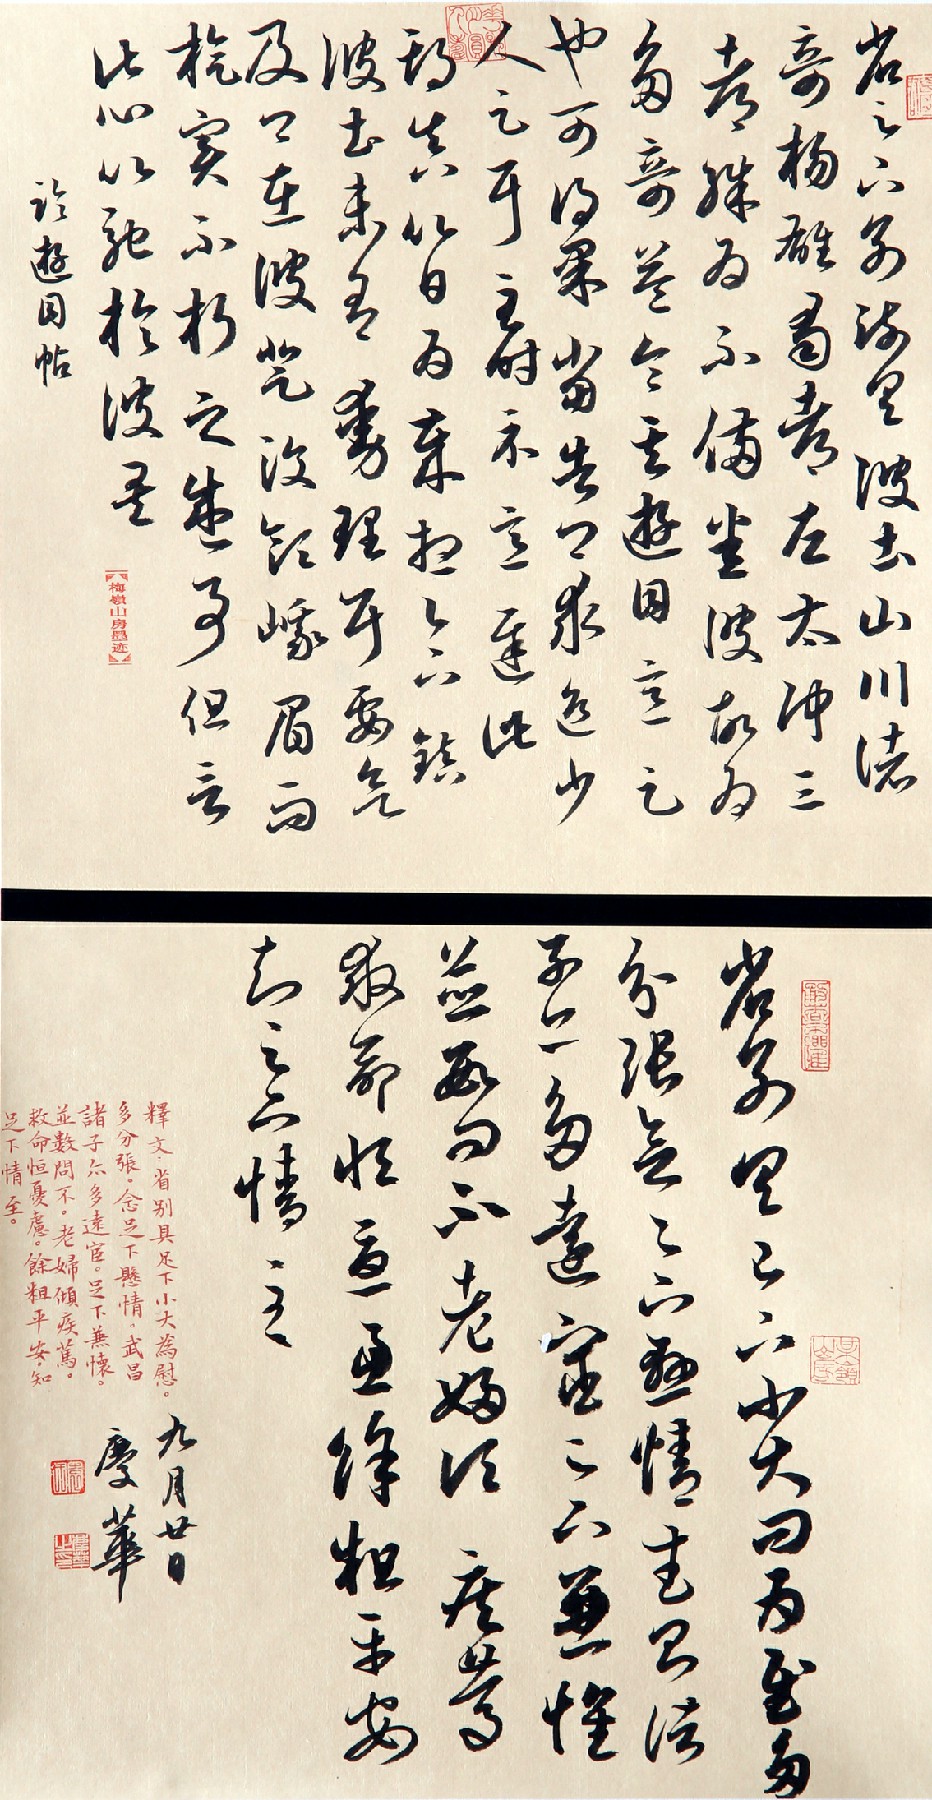 省足下别疏具彼土山川諸
奇楊雄蜀都左太沖三
都殊為不備悉彼故為
多奇益令其遊目意足
也可得果當告卿求迎少
人足耳至時示意遲此
期真以日為歲想足下鎮
彼土未有動理耳要欲
及卿在彼登汶領峨眉而
旋實不朽之盛事但言
此心以馳於彼矣
臨遊目帖
梅嶺山房墨迹
省别具足下小大問為慰多
分張念足下懸情武昌諸
子亦多遠宦足下兼懷
並數問不老婦頃疾篤
救命恒憂慮餘粗平安
知足下情至
釋文:省别具足下小大為慰。
多分張。念足下懸情,武昌
諸子亦多遠宦。足下兼懷。
並數問不。老婦傾疾篤。
救命恒憂慮。餘粗平安。知
足下情至。
九月廿日
慶華